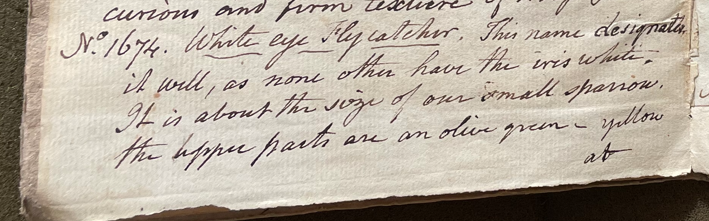 curious and firm texture of
No. 1674. White eye Flycatcher. This name designates
it well, as none other have the iris white.
It is about the size of our small sparrow.
the upper parts are an olive green - yellow
at